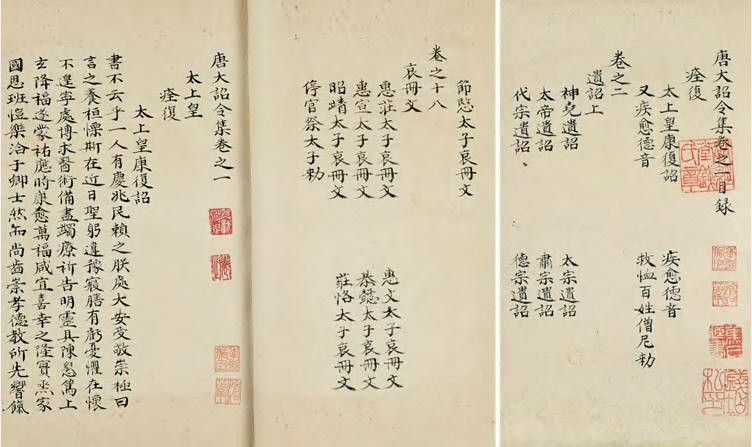 唐大詔令集卷之一目録
痊復
太上皇康復詔 疾愈德音
又疾愈德音 救恤百姓僧尼勅
卷之二
遺詔上
神堯遺詔 太宗遺詔
太帝遺詔 肅宗遺詔
代宗遺詔 德宗遺詔
節愍太子哀冊文
卷之十八
哀冊文
惠莊太子哀冊文 惠文太子哀冊文
惠宣太子哀冊文 恭懿太子哀冊文
昭靖太子哀冊文 莊恪太子哀冊文
停官祭太子勅
唐大詔令集卷之一
太上皇
痊復
太上皇康復詔
書不云乎一人有慶兆民賴之朕處大安受敬崇極曰
言之養桓慄斯在近日聖躬違豫寢膳有虧憂懼在懷
不遑寧處博求醫術備盡蠲療祈告明靈具陳懇篤上
玄降福遂蒙祐應時康愈萬福咸宜喜幸之隆實兼家
國思班愷樂洽于卿士然而尚齒崇孝德教所先饗餼